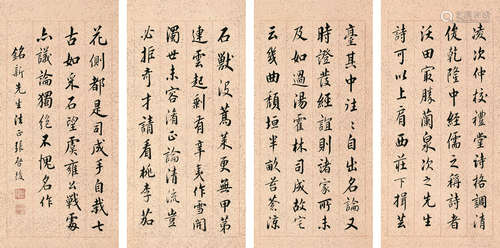 凌次仲校禮堂詩格調清
俊乾隆中經儒之稱詩者
沃田最勝蘭泉次之先生
詩可以上肩西莊下揖芸
臺其中往往自出名論又
時證發經誼則諸家所未
及如過湯霍林司成故宅
云幾曲頹垣半畝苔荒涼
石獸沒蒿萊更無甲第
連雲起剩有辛夷作雪開
濁世未容淆正論清流豈
必拒奇才請看桃李茄
花側都是司成手自栽七
古如采石望虞雍公戰處
亦議論獨絕不愧名作
銘新先生法正張啓後